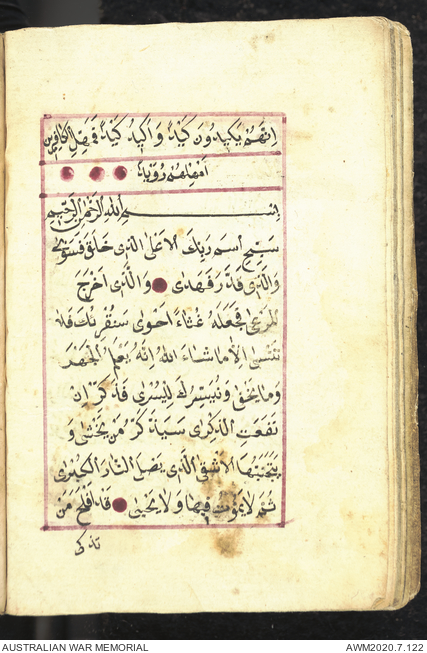 انهم يكيدون كيدا واكيد كيدا فمهل الكافرين
امهلهم رويدا
بسم الله الرحمن الرحيم
سبح اسم ربك الاعلى الذى خلق فسوى
والذى قدر فهدى والذى اخرج
المرعى فجعله غثاء احوى سنقرئك فلا
تنسى الا ما شاء الله انه يعلم الجهر
وما يخفى ونيسرك لليسرى فذكر ان
نفعت الذكرى سيذكر من يخشى و
يتجنبها الاشقى الذى يصلى النار الكبرى
ثم لا يموت فيها ولا يحيى قد افلح من
تزكى
AUSTRALIAN WAR MEMORIAL
AWM2020.7.122